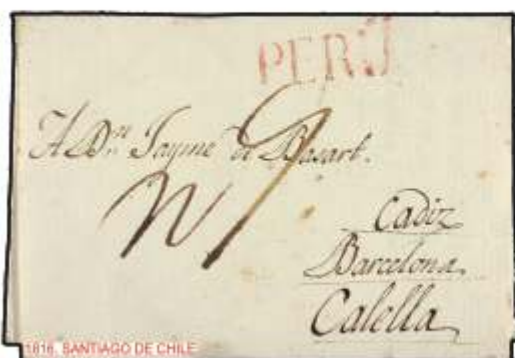 PERU
A Dn. Jayme de Basart.
Cadiz
Barcelona
Calella
1816. SANTIAGO DE CHILE